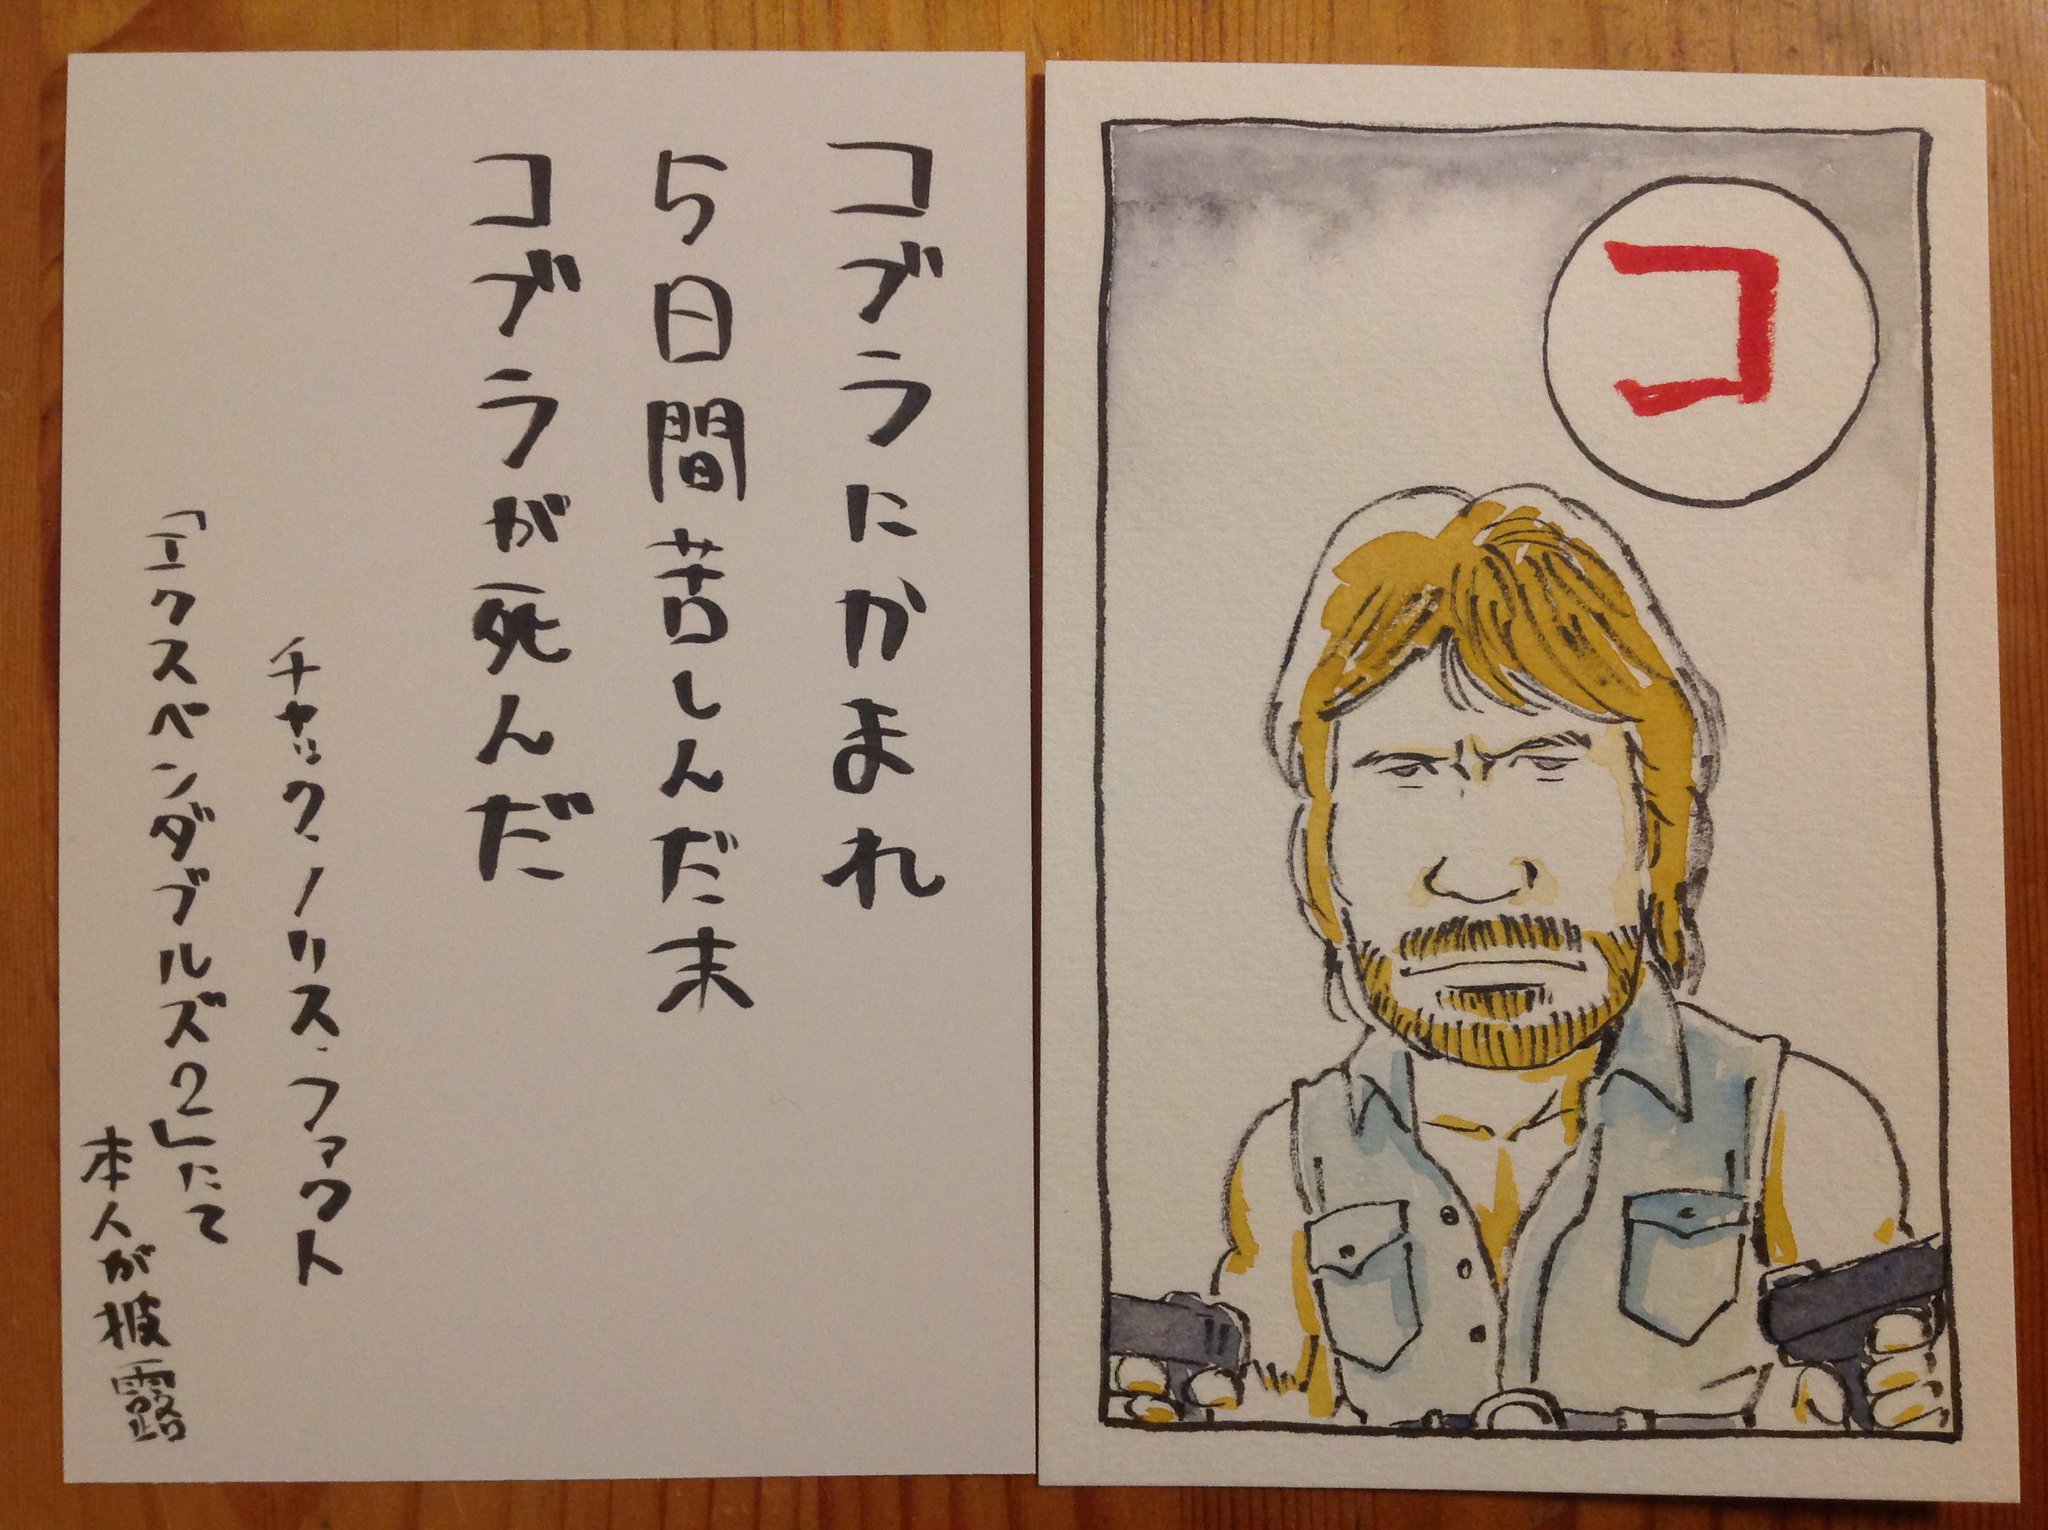 コブラにかまれ
5日間苦しんだ末
コブラが死んだ
チャック・ノリス・ファクト
「エクスペンダブルズ2」にて
本人が披露
コ